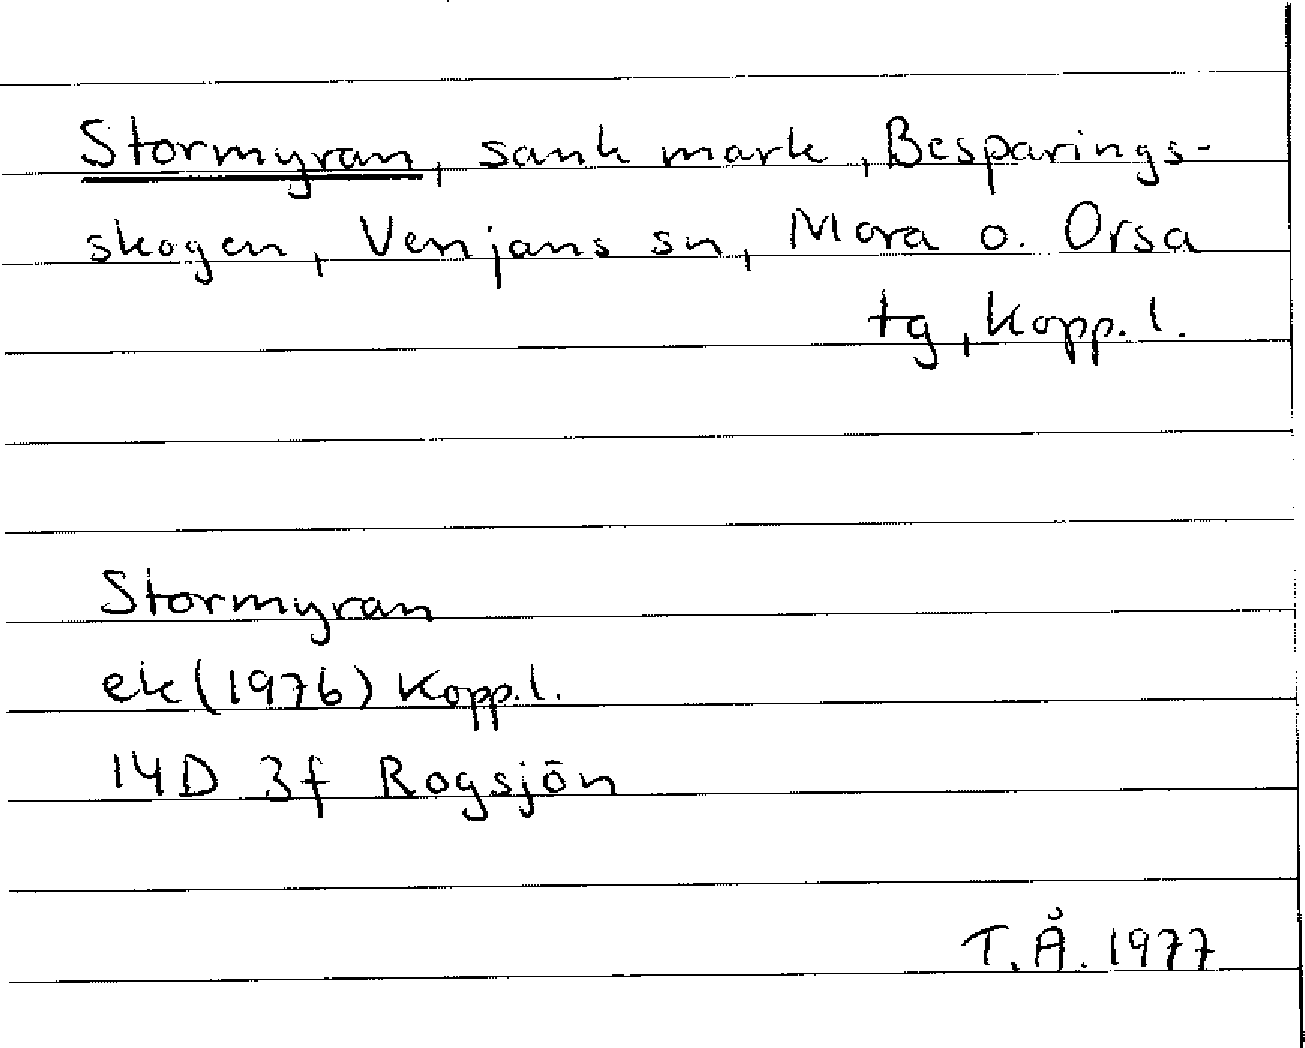 Stormyran, sank mark, Besparings-
skogen, Venjans sn, Mora o. Orsa
tg, Kopp. l.
Stormyran
ek (1976) Kopp. l.
14D 3f Rogsjön
T. Å. 1977